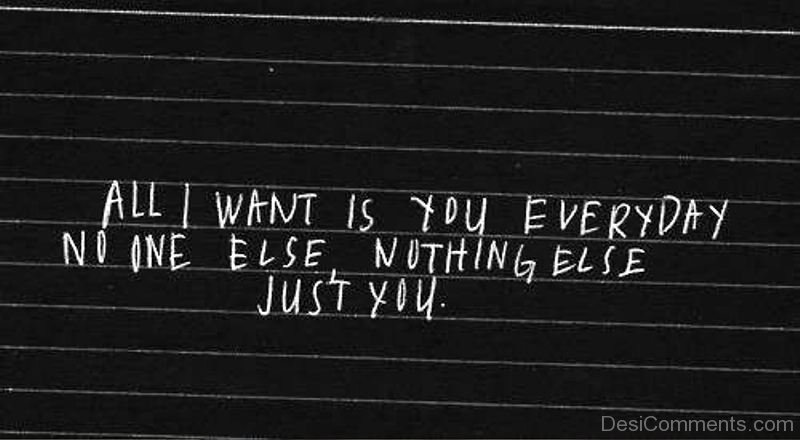 ALL I WANT IS YOU EVERYDAY
NO ONE ELSE, NOTHING ELSE
JUST YOU.
DesiComments.com